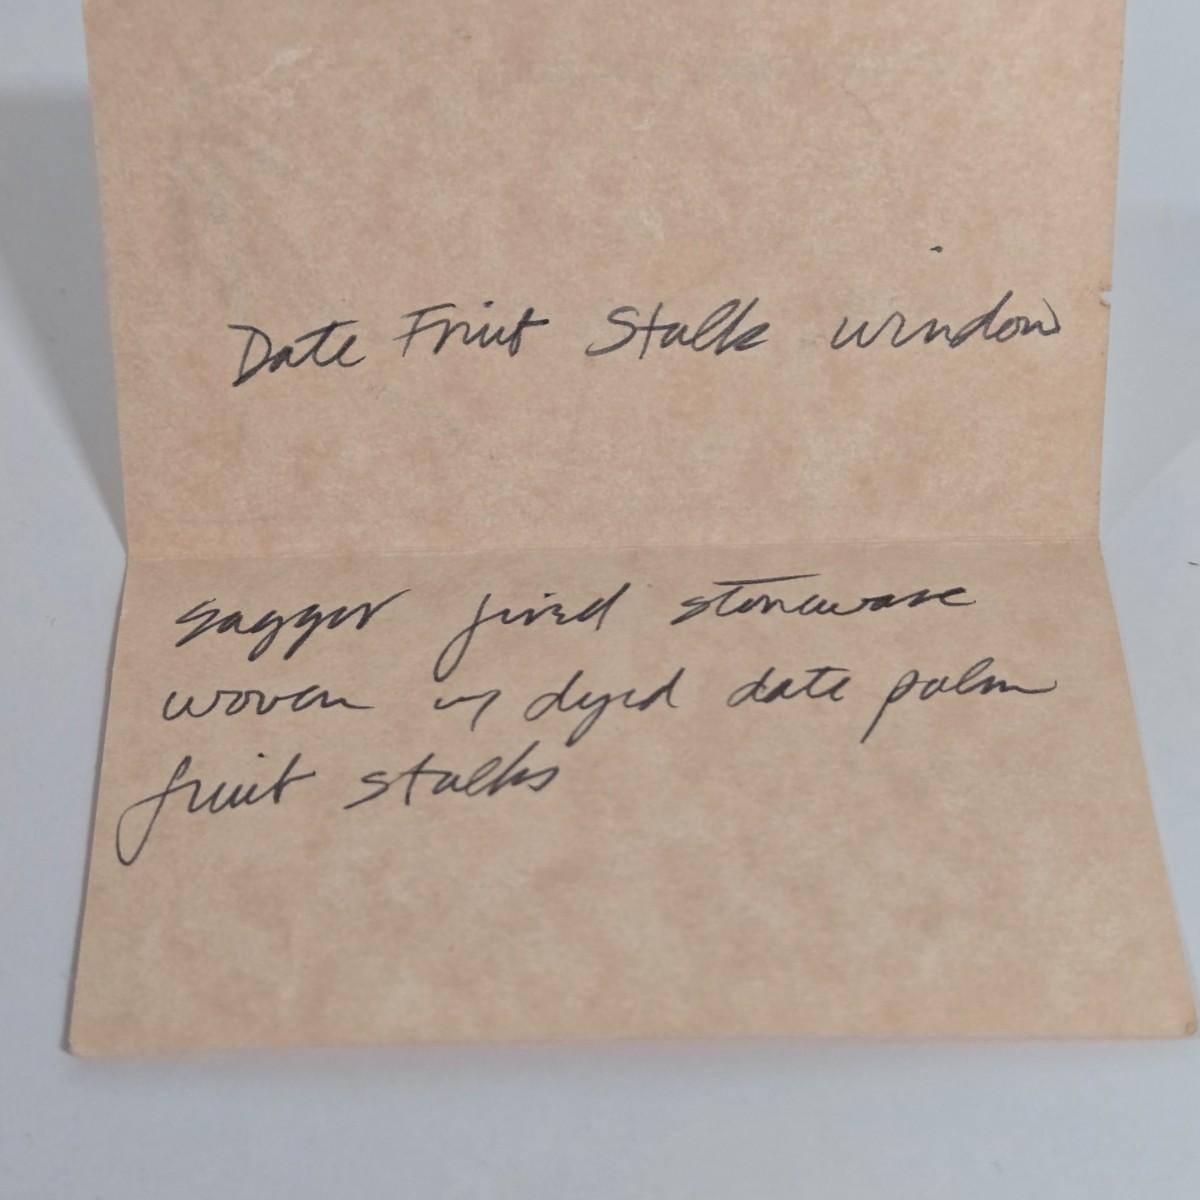 Date Fruit Stalk window
saggar fired stoneware
woven w/ dyed date palm
fruit stalks